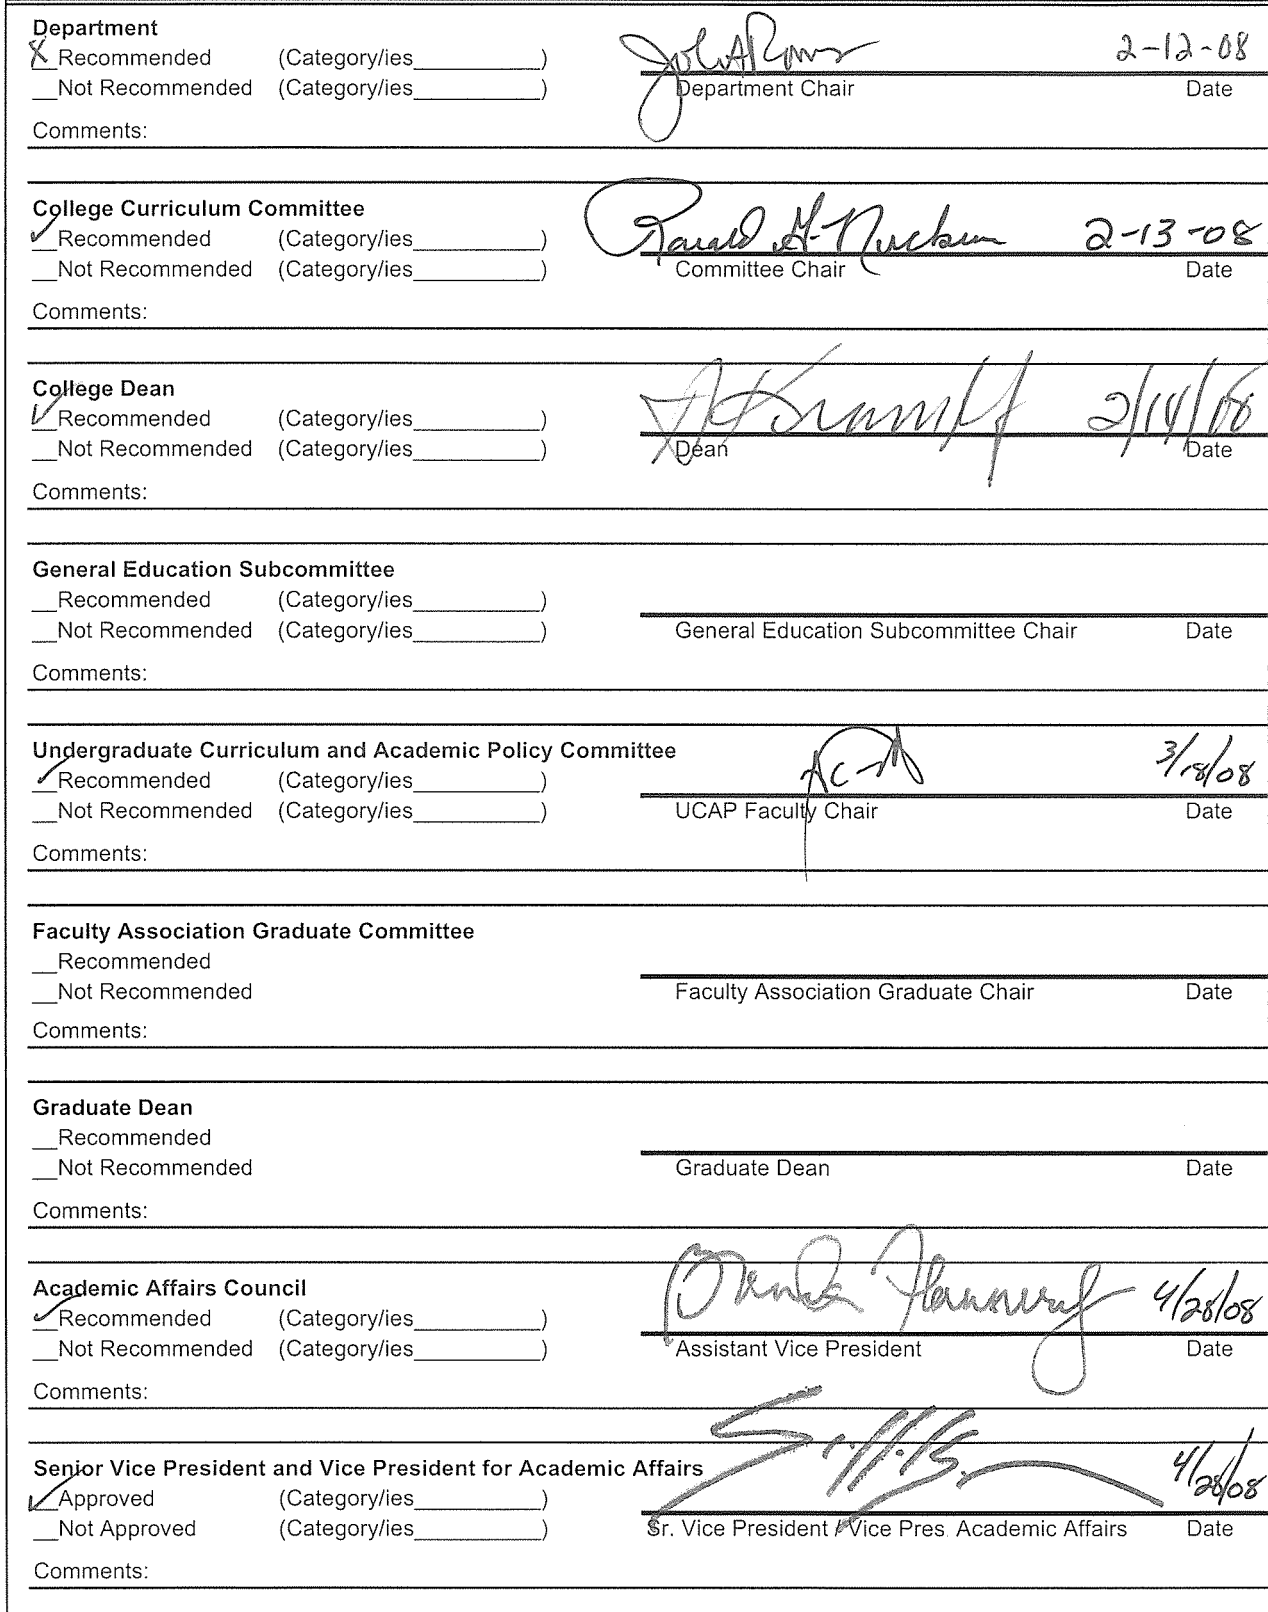 Department
X Recommended (Category/ies__________) 2-12-08
__Not Recommended (Category/ies__________) Department Chair Date
Comments:
College Curriculum Committee
✓ Recommended (Category/ies__________) Ronald G. 2-13-08
__Not Recommended (Category/ies__________) Committee Chair Date
Comments:
College Dean
✓ Recommended (Category/ies__________) 2/14/08
__Not Recommended (Category/ies__________) Dean Date
Comments:
General Education Subcommittee
__Recommended (Category/ies__________)
__Not Recommended (Category/ies__________) General Education Subcommittee Chair Date
Comments:
Undergraduate Curriculum and Academic Policy Committee
✓ Recommended (Category/ies__________) 3/18/08
__Not Recommended (Category/ies__________) UCAP Faculty Chair Date
Comments:
Faculty Association Graduate Committee
__Recommended
__Not Recommended Faculty Association Graduate Chair Date
Comments:
Graduate Dean
__Recommended
__Not Recommended Graduate Dean Date
Comments:
Academic Affairs Council
✓ Recommended (Category/ies__________) 4/28/08
__Not Recommended (Category/ies__________) Assistant Vice President Date
Comments:
Senior Vice President and Vice President for Academic Affairs
✓ Approved (Category/ies__________) 4/28/08
__Not Approved (Category/ies__________) Sr. Vice President / Vice Pres. Academic Affairs Date
Comments: